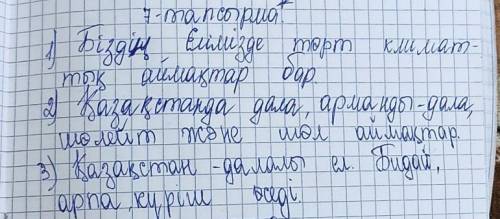 7-тапсырма
1) Біздің Елімізде төрт климат-
тық аймақтар бар.
2) Қазақстанда дала, арманды-дала,
шөлейт және шөл аймақтар.
3) Қазақстан -далалы ел. Бидай,
арпа, күріш өседі.